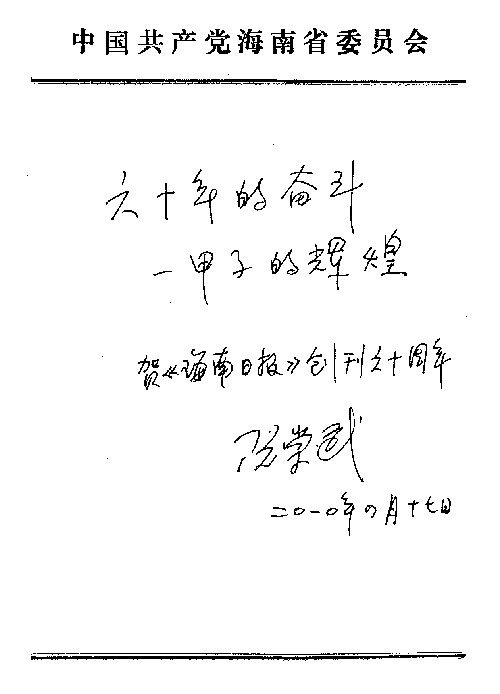 中国共产党海南省委员会
六十年的奋斗
一甲子的辉煌
贺《海南日报》创刊六十周年
阮崇武
二〇一〇年四月十七日